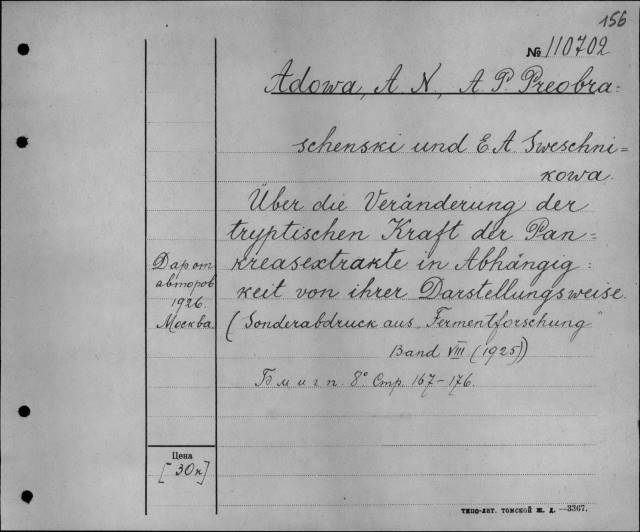 156
№ 110702
Adowa, A N, A. P. Preobra=
schenski und E A Sweschni=
kowa.
Über die Veränderung der
tryptischen Kraft der Pan=
kreasextrakte in Abhängig=
keit von ihrer Darstellungsweise.
(Sonderabdruck aus „Fermentforschung"
Band VIII (1925))
Б м и г п. 8° Стр. 167-176.
Дар от
авторов
1926.
Москва.
Цена
[30к]
ТИПО-ЛИТ. ТОМСКОЙ Ж. Д. —3367.